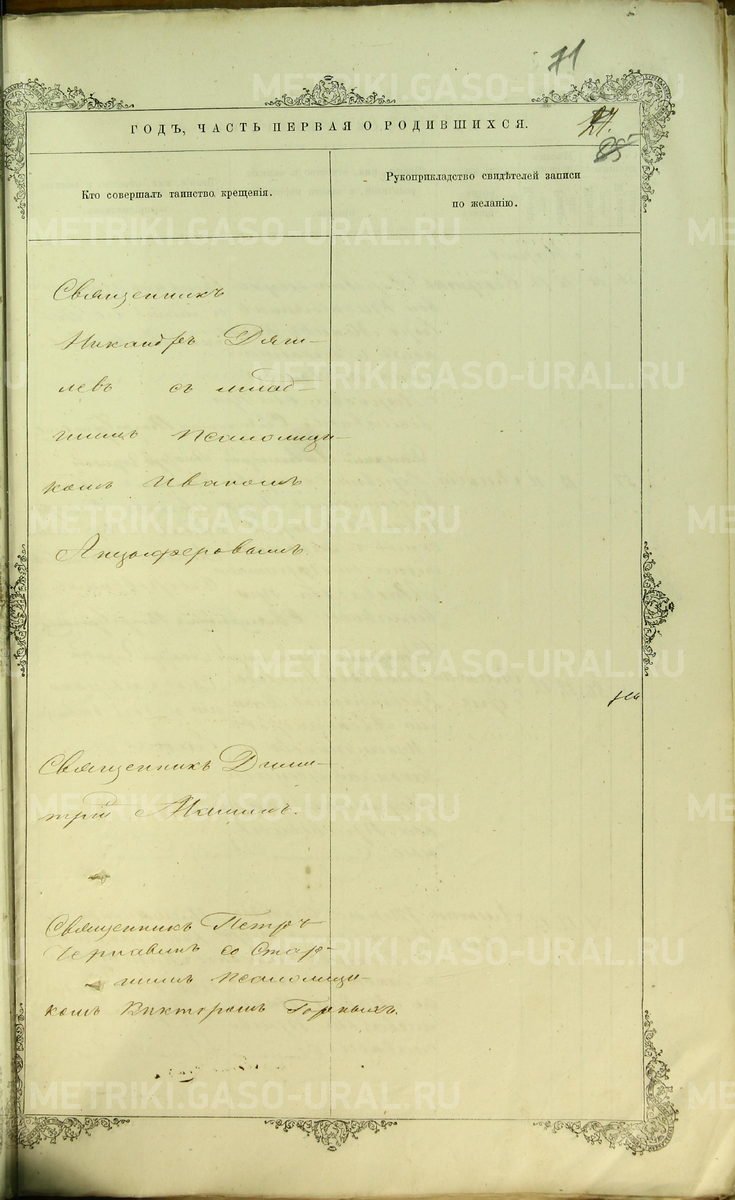 71
ГОДЪ, ЧАСТЬ ПЕРВАЯ О РОДИВШИХСЯ.
85
Кто совершалъ таинство крещенія.
Рукоприкладство свидѣтелей записи
по желанію.
Священникъ
Никандръ Дяги-
левъ съ млад-
шимъ псаломщи-
комъ Иваномъ
Священникъ Дими-
трій
Священникъ Петръ
Чернавинъ со стар-
шимъ псаломщи-
комъ Викторомъ Горныхъ.
METRIKI.GASO-URAL.RU